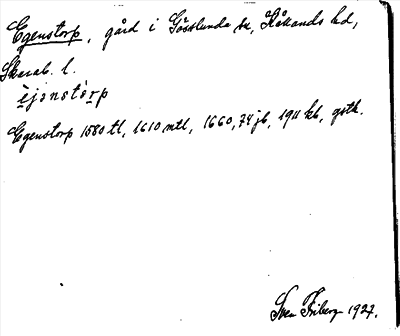 Egenstorp, gård i Gösslunda sn, Kållands hd,
Skarab. l.
ejenstorp
Egenstorp 1580 tl, 1610 mtl, 1660, 74 jb, 1911 kb, gsth.
Sven Friberg 1927.